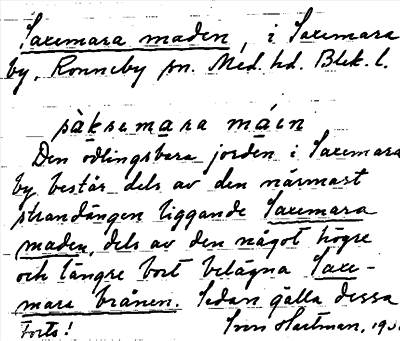 Saxemara maden, i Saxemara
by, Ronneby sn. Med. hd. Blek. l.
sàksemara máen
Den odlingsbara jorden i Saxemara
by består dels av den närmast
strandängen liggande Saxemara
maden, dels av den något högre
och längre bort belägna Saxe-
mara brånen. Sedan gälla dessa
Forts! Sven Hartman, 193